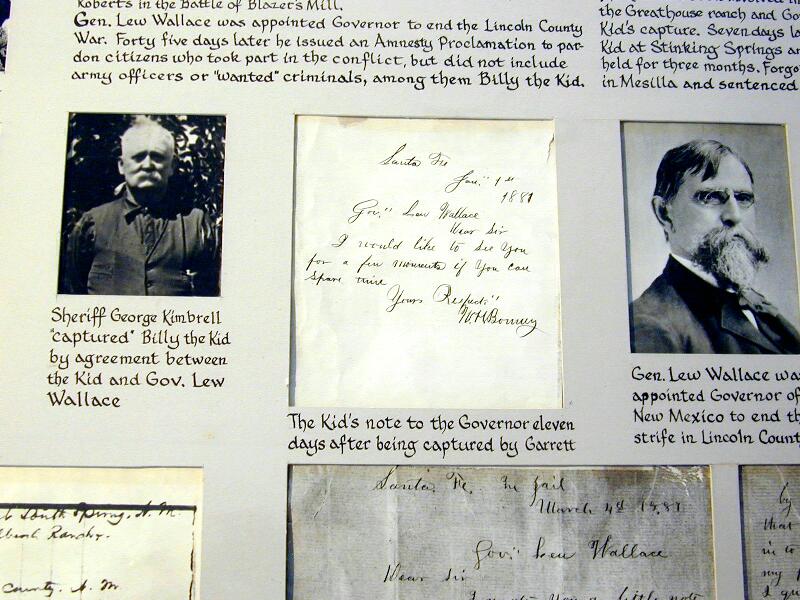 Roberts in the Battle of Blazer's Mill.
Gen. Lew Wallace was appointed Governor to end the Lincoln County
War. Forty five days later he issued an Amnesty Proclamation to par-
don citizens who took part in the conflict, but did not include
army officers or "wanted" criminals, among them Billy the Kid.
the Greathouse ranch and Go
Kid's capture. Seven days la
Kid at Stinking Springs an
held for three months. Forgo
in Mesilla and sentenced
Santa Fe
Jan." 1st
1881
Gov." Lew Wallace
Dear Sir
I would like to see You
for a few moments if You can
Spare time
Yours Respect."
W.H.Bonney
Sheriff George Kimbrell
"captured" Billy the Kid
by agreement between
the Kid and Gov. Lew
Wallace
The Kid's note to the Governor eleven
days after being captured by Garrett
Gen. Lew Wallace was
appointed Governor of
New Mexico to end th
strife in Lincoln Count
South Spring, N. M.
County. N. M
Santa. Fe. In jail
March 4th 1881
Gov." Lew Wallace
Dear Sir
You a little note
by
that
in to
my
I gu